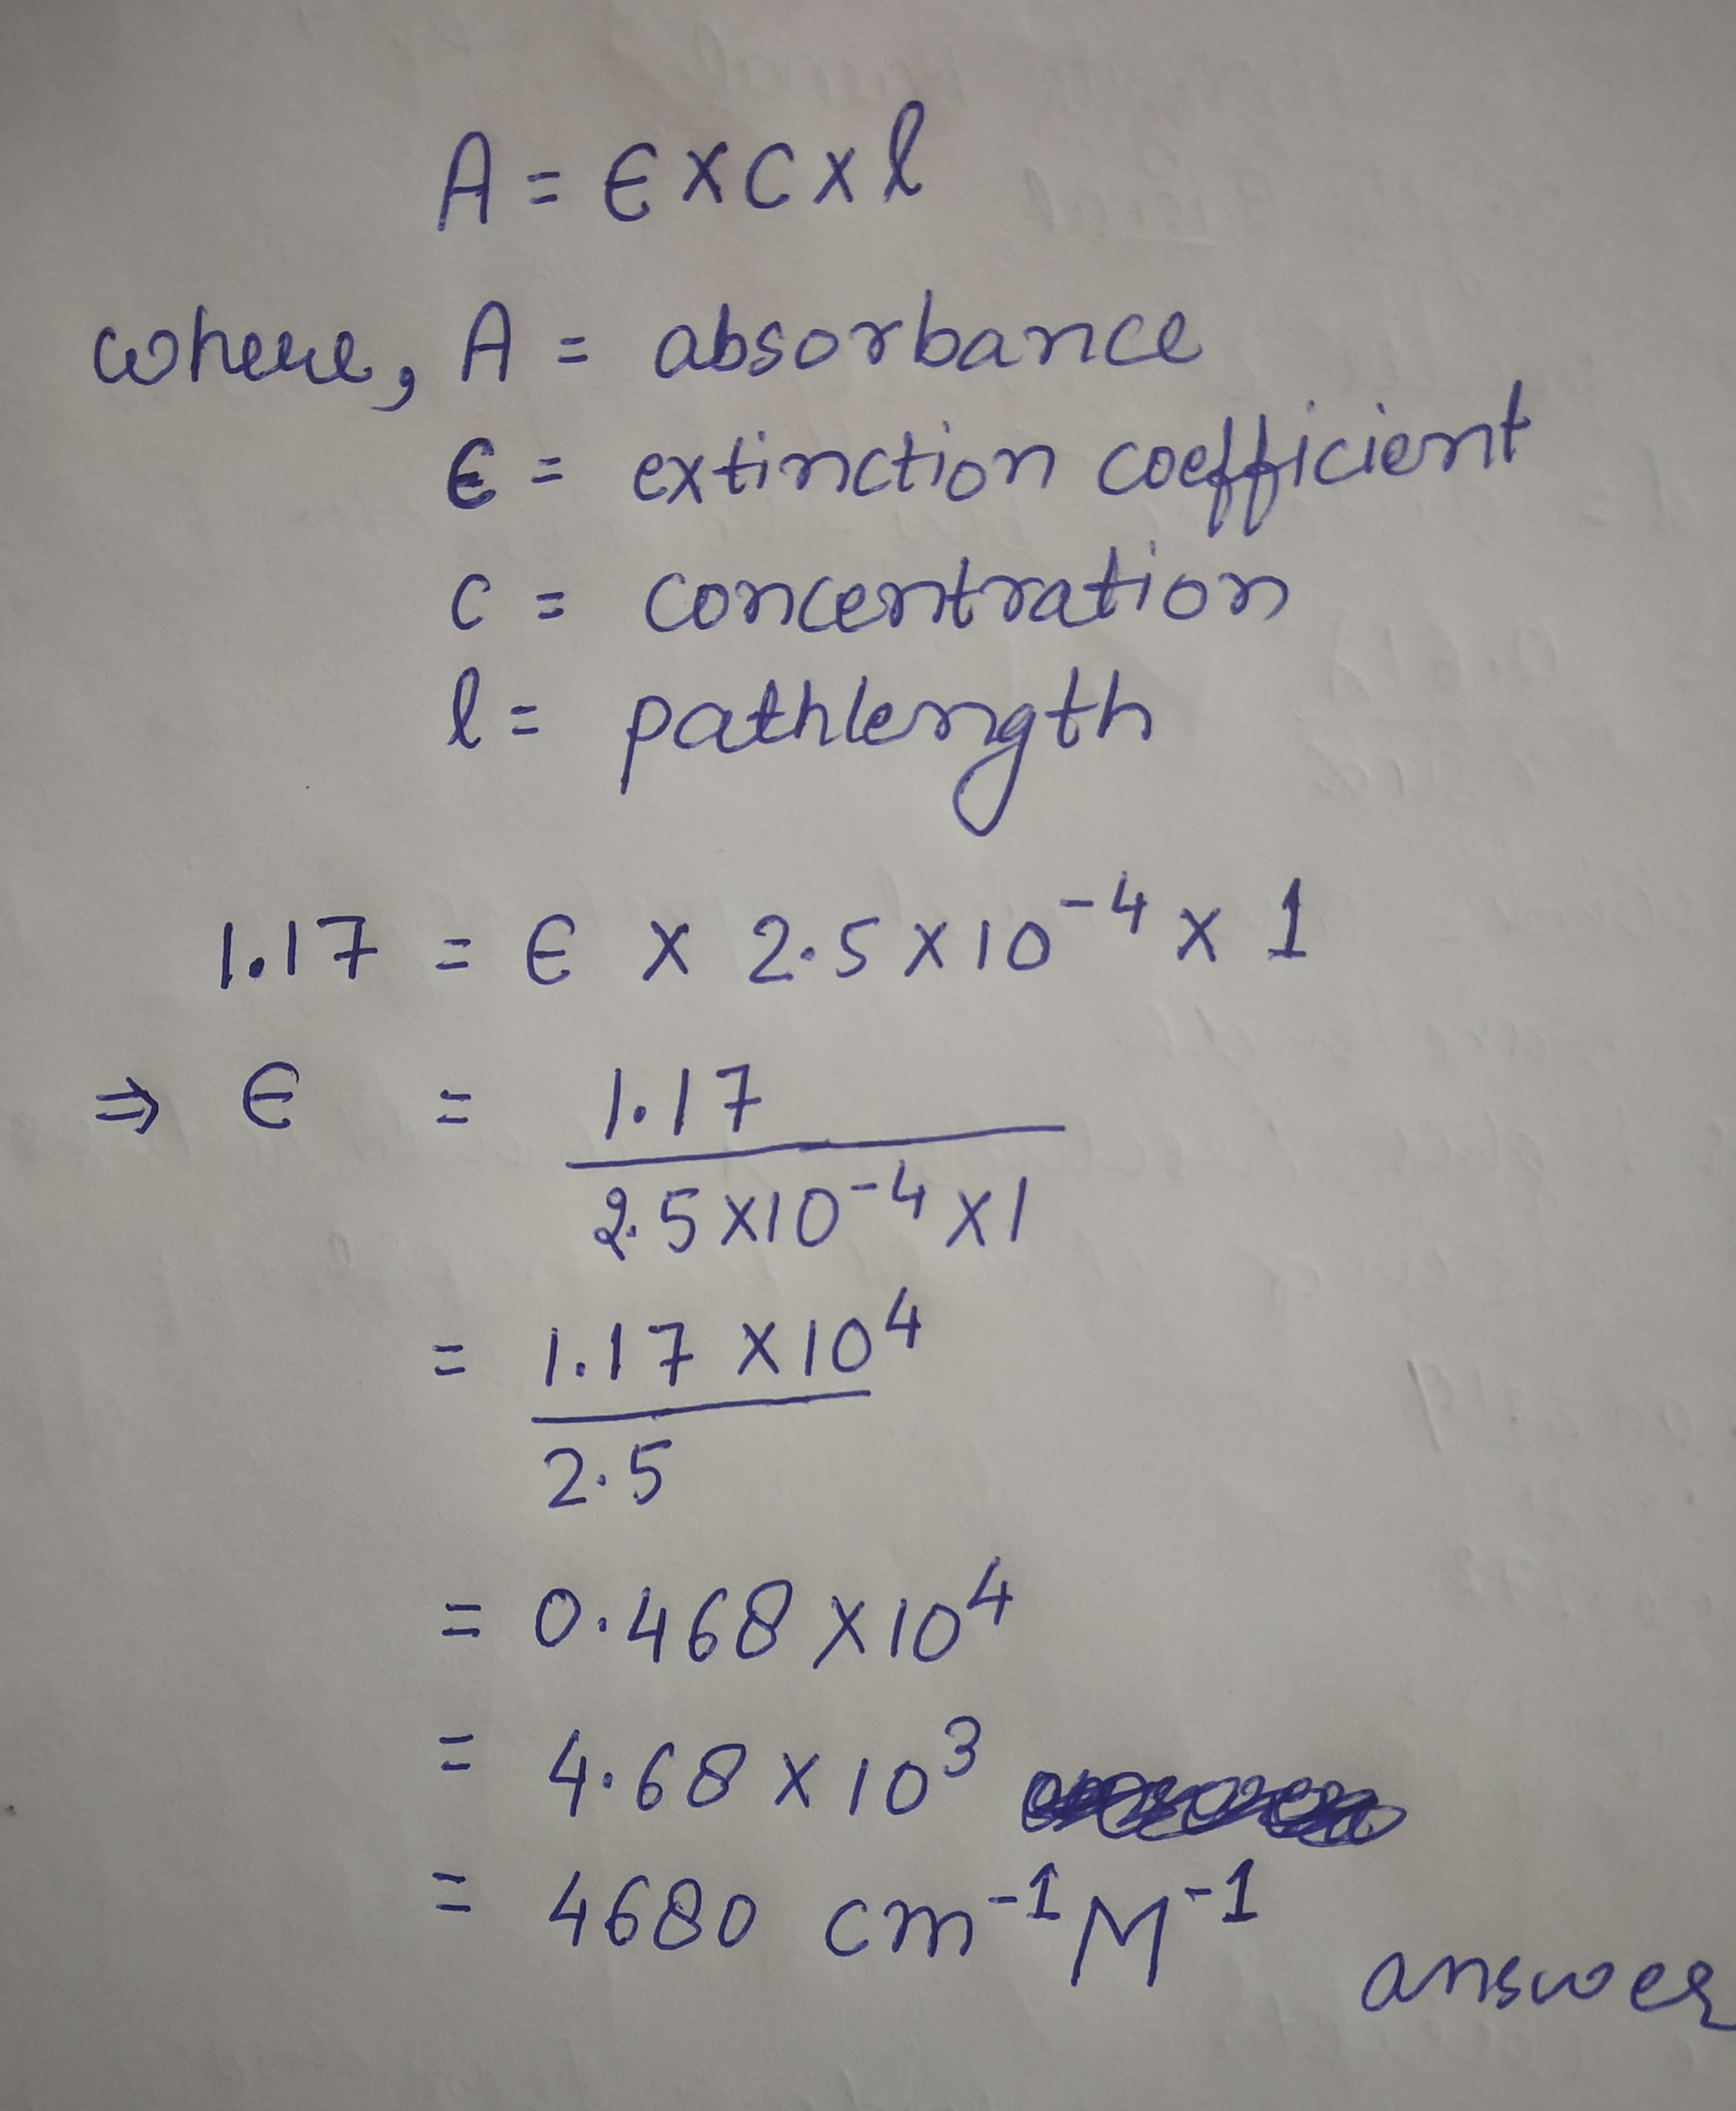 A = ϵ × c × l
where, A = absorbance
ϵ = extinction coefficient
c = concentration
l = pathlength
1.17 = ϵ × 2.5 × 10⁻⁴ × 1
⇒ ϵ = 1.17
2.5 × 10⁻⁴ × 1
= 1.17 × 10⁴
2.5
= 0.468 × 10⁴
= 4.68 × 10³
= 4680 cm⁻¹ M⁻¹
answer